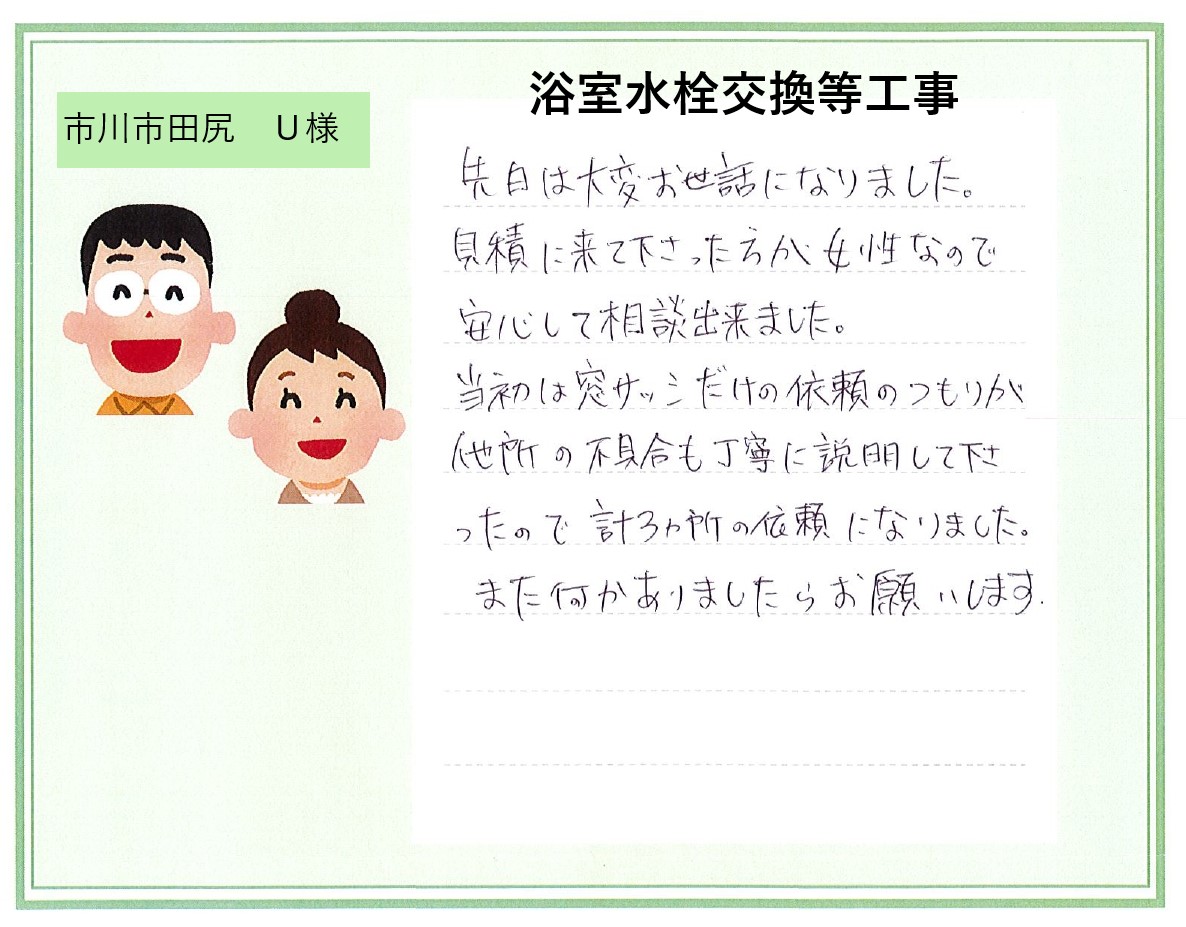 浴室水栓交換等工事
市川市田尻　Ｕ様
先日は大変お世話になりました。
見積に来て下さった方が女性なので
安心して相談出来ました。
当初は窓サッシだけの依頼のつもりが
他所の不具合も丁寧に説明して下さ
ったので計3ヵ所の依頼になりました。
また何かありましたらお願いします.